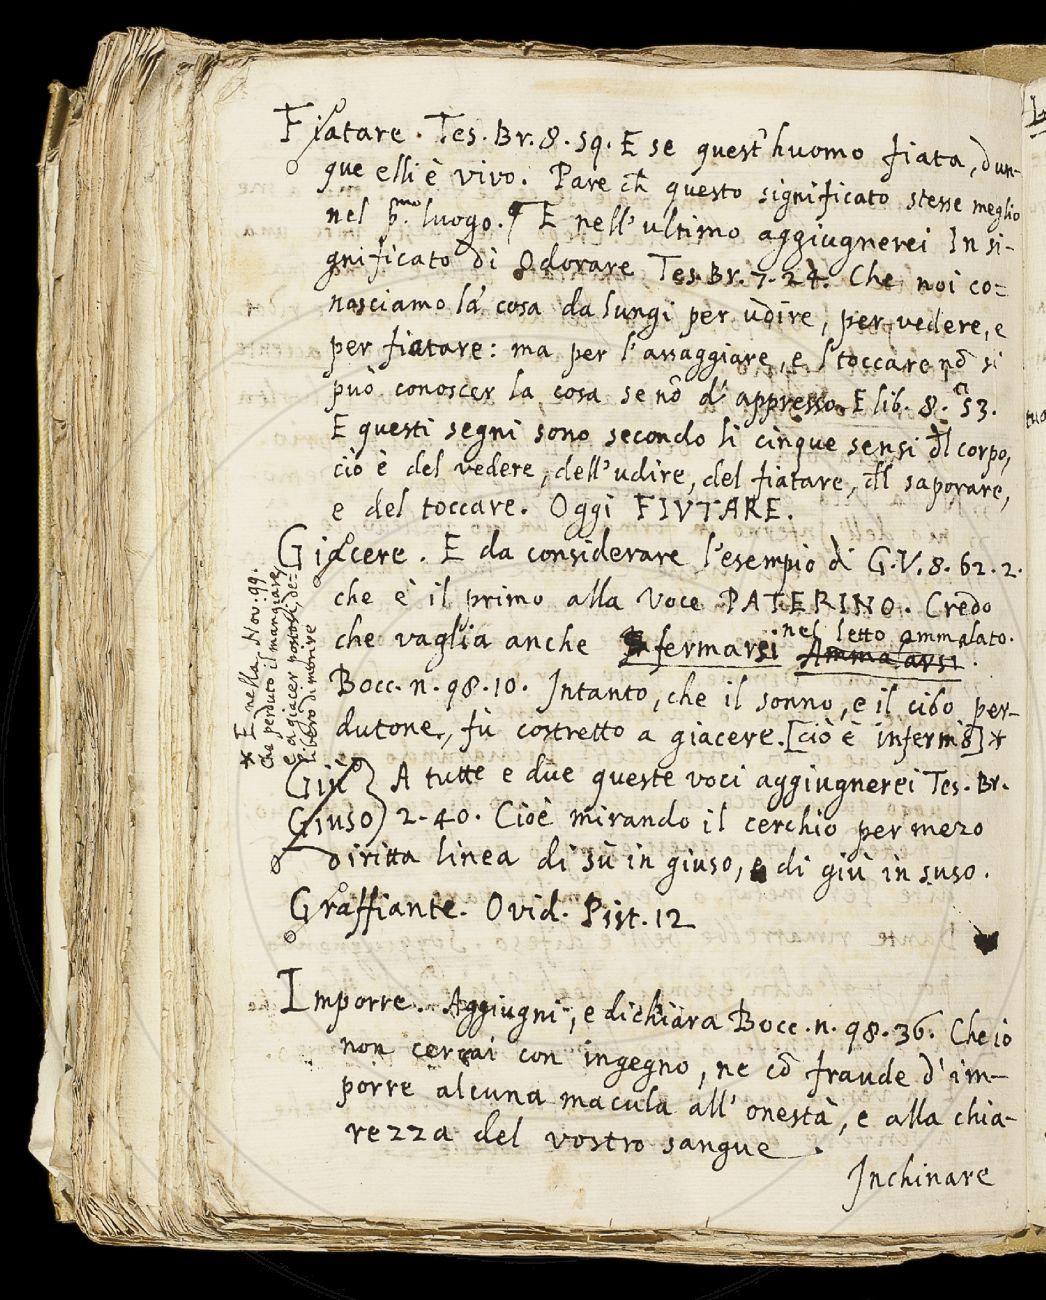 Fiatare. Tes. Br. 8. 59. E se quest'huomo fiata, dun-
que elli è vivo. Pare ch̃ questo significato stesse meglio
nel p.mo luogo. E nell'ultimo aggiugnerei In si-
gnificato di Odorare Tes. Br. 7. 24. Che noi co=
nosciamo la cosa da lungi per udire, per vedere, e
per fiatare: ma per l'assaggiare, e l toccare nō si
può conoscer la cosa se nō d'appresso. E lib. 8. 53.
E questi segni sono secondo li cinque sensi d̃l corpo,
ciò è del vedere, dell'udire, del fiatare, d̃l saporare,
e del toccare. Oggi FIVTARE.
Giacere. E da considerare l'esempio di G. V. 8. 62. 2.
che è il primo alla voce PATERINO. Credo
che vaglia anche Infermarsi nel letto ammalato.
Ammalarsi.
Bocc. n. 98. 10. Intanto, che il sonno, e il cibo per-
dutone, fù costretto a giacere. [ciò è infermò]*
* E nella Nov. 99.
che perduto il mangiare,
e a giacer postosi, de=
liberò di morire
Giù } A tutte e due queste voci aggiugnerei Tes. Br.
Giuso } 2-40. Cioè mirando il cerchio per mezo
diritta linea di sù in giuso, e di giù in suso.
Graffiante. Ovid. Pist. 12
Imporre. Aggiugni, e dichiara Bocc. n. 98. 36. Che io
non cercai con ingegno, ne cō fraude d'im-
porre alcuna macula all'onestà, e alla chia-
rezza del vostro sangue.
Inchinare